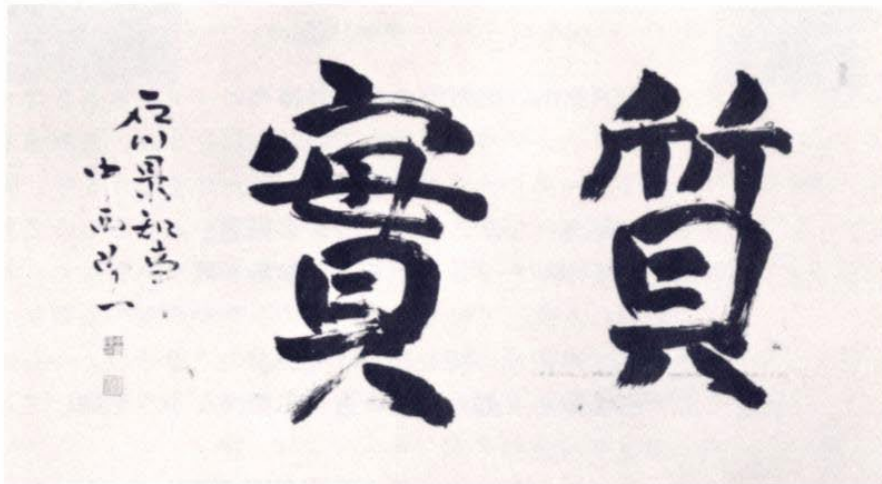 質實
石川県知事
中西陽一